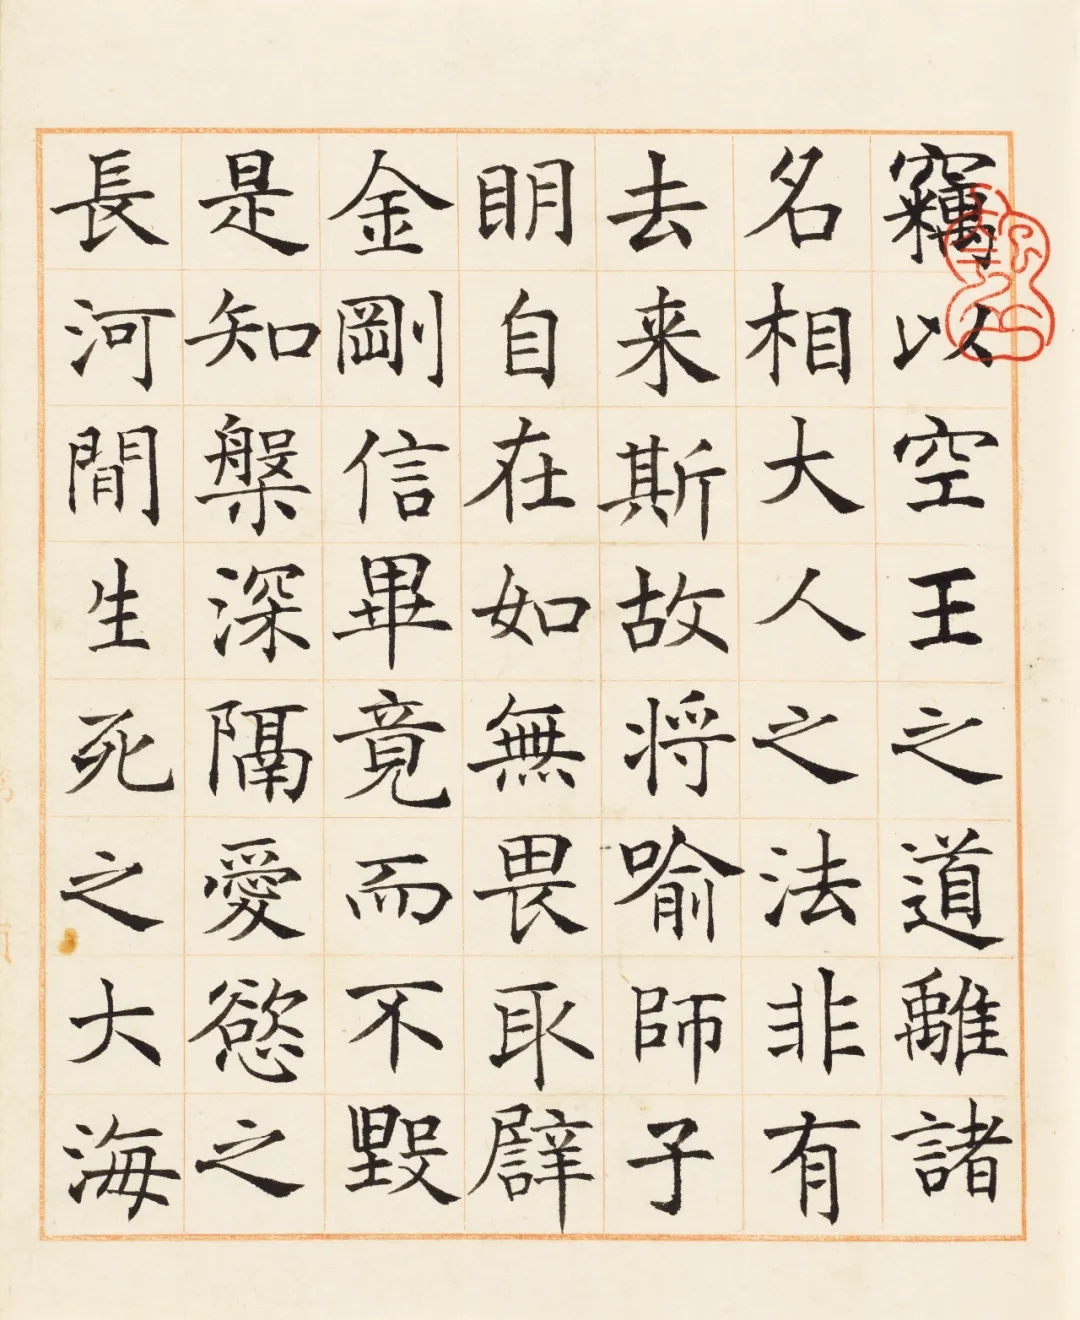 竊以空王之道離諸
名相大人之法非有
去来斯故将喻師子
明自在如無畏取譬
金剛信畢竟而不毀
是知槃深隔愛慾之
長河間生死之大海